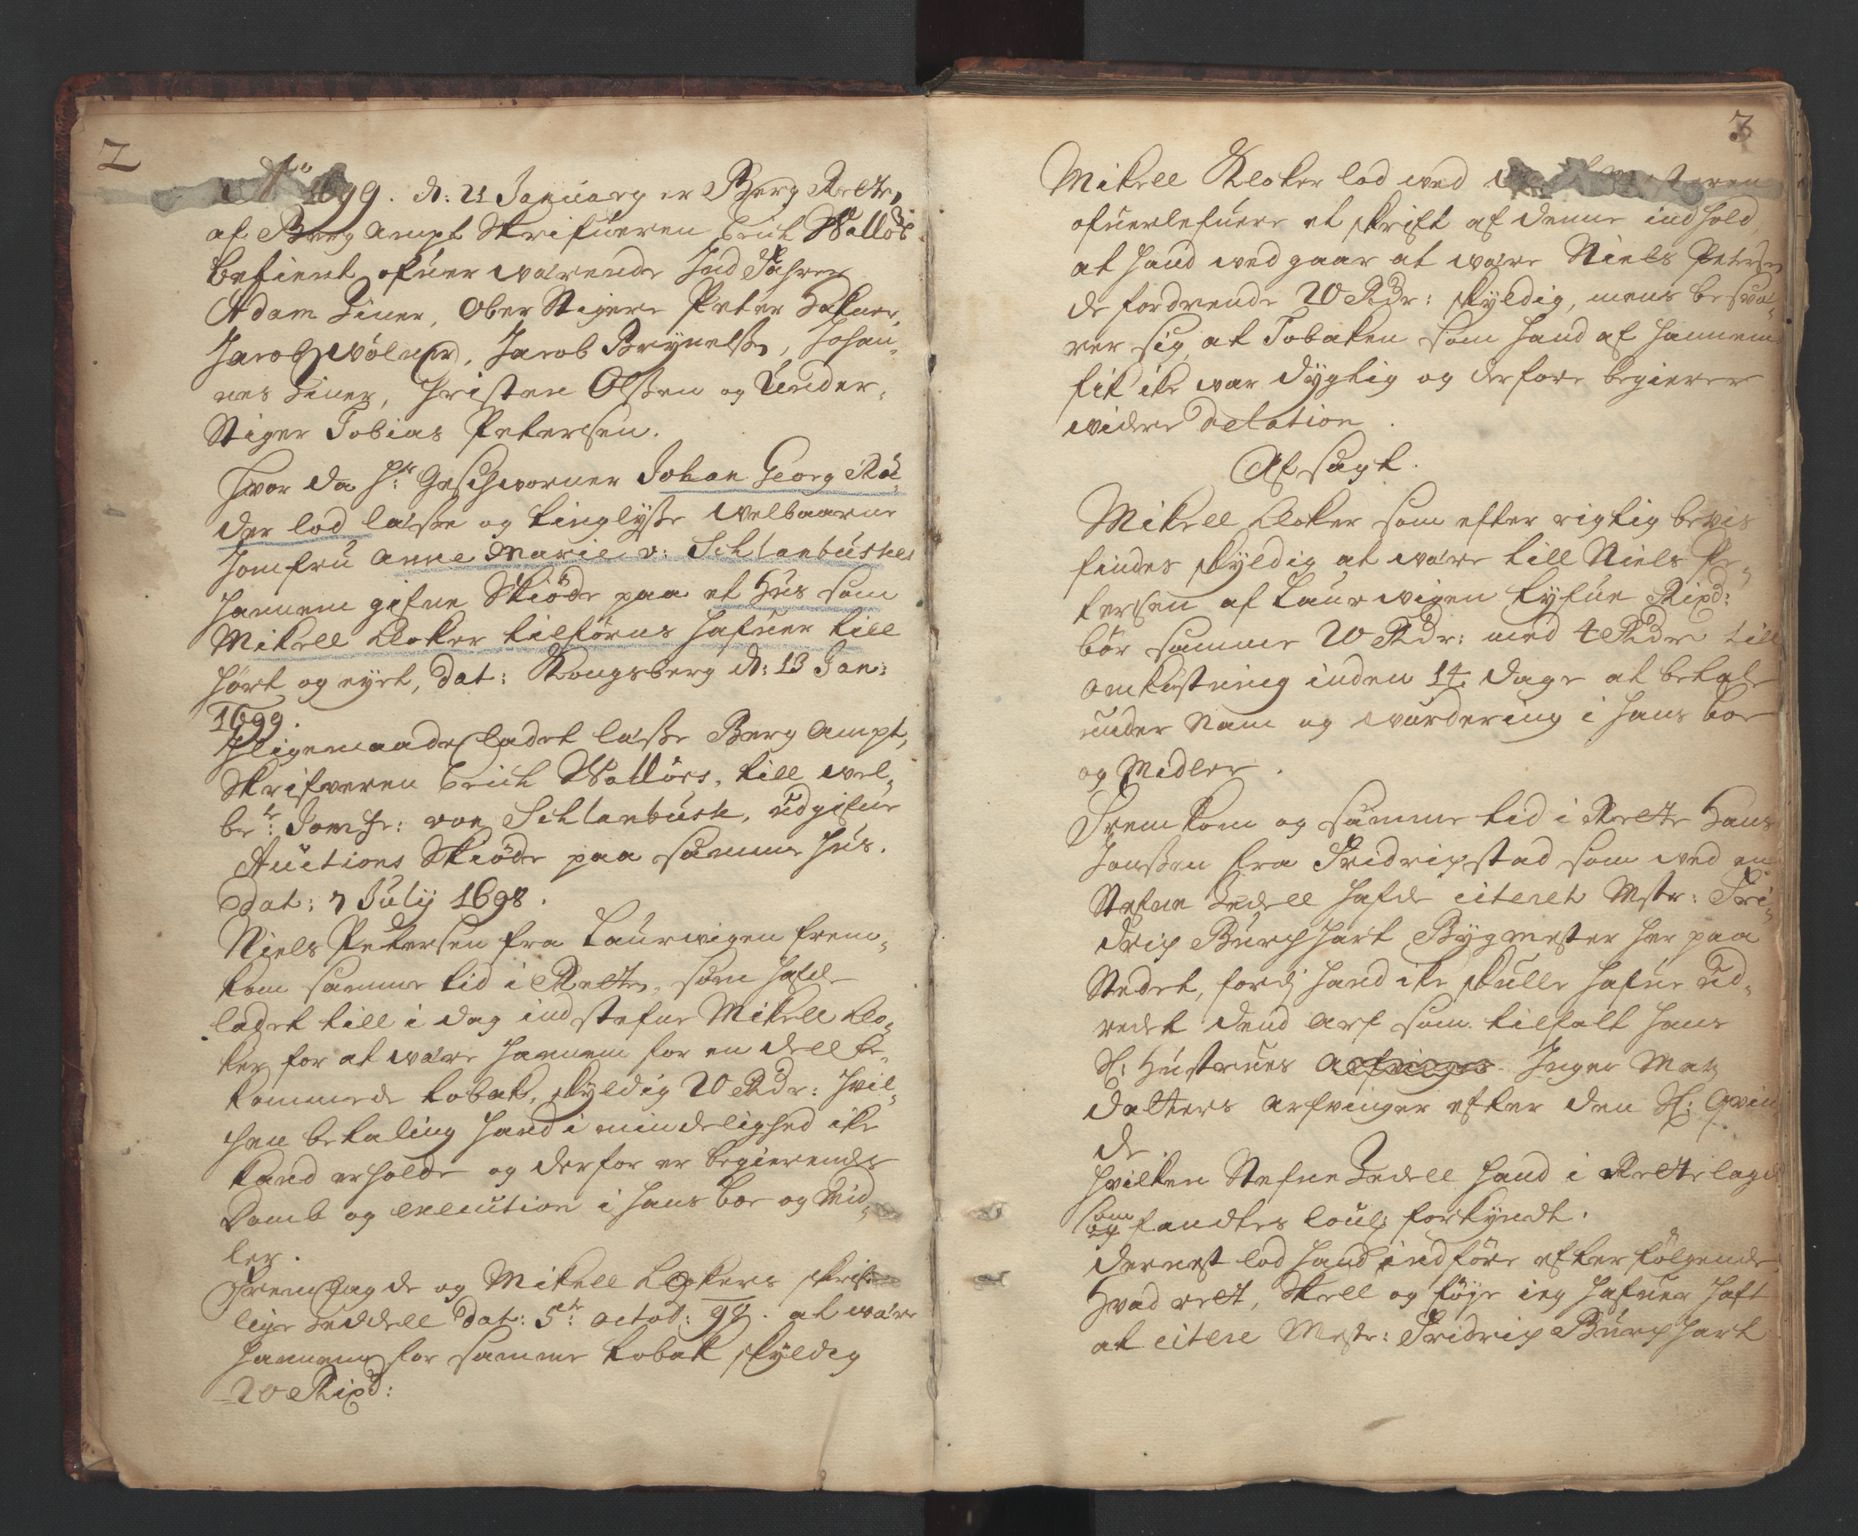 2
Aō 1699. d: 21 Januarÿ er Berg Rette,
af Berg Ampt Skrifueren Erich Wallőe
betient, ofuer wærende Ind Fahrer
Adam Einer, Ober Stigere Peter Hafner,
Jacob Wőlner, Jacob Brÿnelßøn, Johan-
nes Einer, Christen Olßen og Under-
Stiger Tobias Petersen.
Hvor da Hr: Geschworner Johan Georg Rő-
der lod læße og tinglÿße welbaarne
Jomfru Anne Marie v: Schlanbuskes
hannem gifne Skiőde paa et Hus som
Mikell Kloker tilforns hafuer till
hőrt og eyet, dat: Kongsberg d: 13 Jan:
1699.
Iligemaade ladet læße Berg Ampt,
Skrifveren Erich Wallőes, till wel-
be:te: Jomfr: von Schlanbusk, udgifne
Auctions Skiőde paa samme hus.
dat: 7 July 1698.
Niels Petersen fra Laurwigen frem-
kom samme tid i Rette, som hafde
ladet till i dag indstefne Mikell Klo-
ker for at wære hannem for en deell be-
kommende tobak, skyldig 20 Rdr: hvil-
chen betaling hand i mindelighed ike
kand erholde og derfor er begierende
Domb og execution i hans boe og Mid-
ler.
Fremlagde og Mikell Klokers skrift-
lige Zeddell dat: 5te: Octob: 98. at wære
hannem for samme tobak skyldig
20 Rixd:
3
Mikell Kloker lod wed
ofuerlefuere et skrift af denne indhold,
at hand wedgaar at wære Niels Petersen
de fordrende 20 Rdr: skyldig, mens besvæ-
rer sig, at Tobaken som hand af hannem
fik ike war dygtig og derfore begierer
widere Delation.
Afsagt.
Mikell Kloker som efter rigtig bevis
findes skyldig at wære till Niels Pe-
tersen af Laurwigen tyfue Rixd:
bőr samme 20 Rdr: med 4 Rdr till
omkostning inden 14. dage at betale
under Nam og wurdering i hans boe
og Midler.
Fremkom og samme tid i Rette Hans
Jonßen fra Fridrichstad som wed en
Stefne Zedell hafde citeret Mstr: Fri-
drich Burchhart Bÿgmester her paa
Stedet, fordj hand ike skulle hafue ud-
redet dend Arf som tilfalt hans
Sl: Hustrues Arfvinger Inger Mag
dalters arfvinger efter den Sl: Qvin
de
hvilken Stefne Zedell hand i Rette lagde
som
og fandtes loul: forkÿndt.
dernest lod hand indfőre efterfőlgende
Hvad rett, Skell og fője ieg hafuer haft
at citere Mestr: Fridrich Burchhart